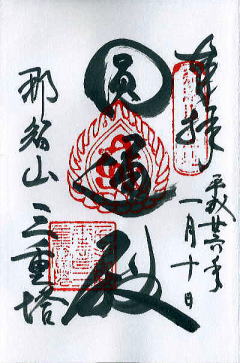 奉拝
平成廿六年
一月十日
圓通殿
那智山 三重塔